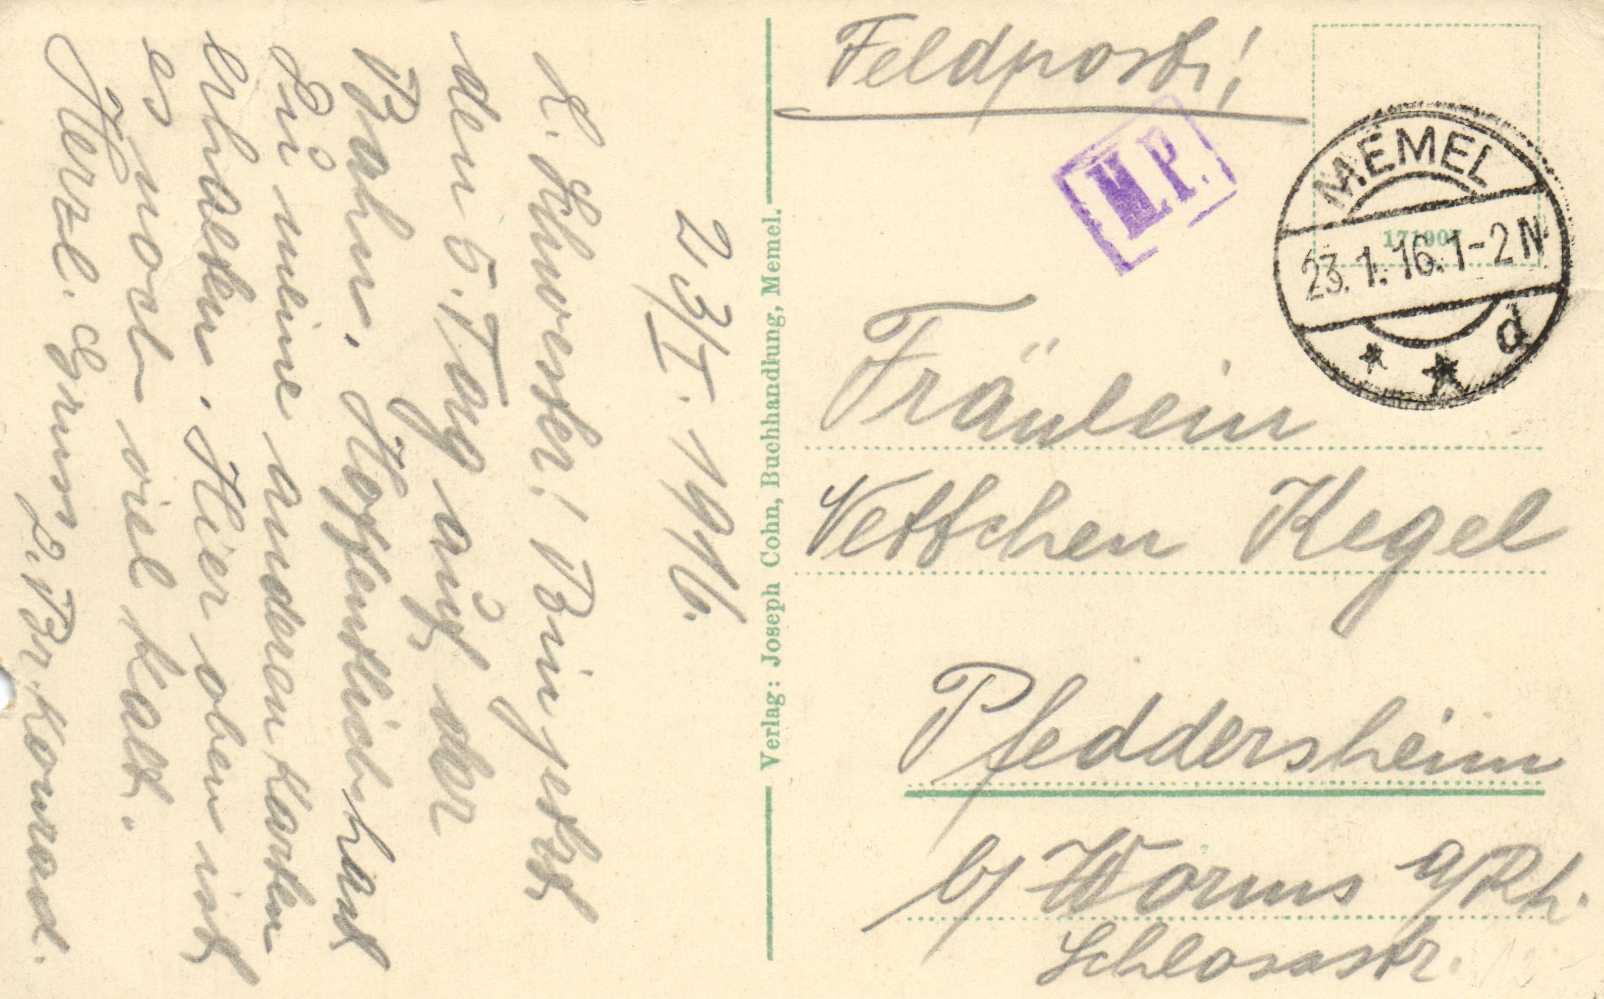 23/I. 1916.
L. Schwester! Bin jetzt
den 5. Tag auf der
Bahn. Hoffentlich hast
Du meine anderen Karten
erhalten. Hier oben ist
es noch viel kalt.
Herzl. Gruss D. Br. Konrad.
Verlag: Joseph Cohn, Buchhandlung, Memel.
Feldpost!
M.P.
MEMEL
23.1.16.1-2N
d
171907
Fräulein
Nettchen Kegel
Pfeddersheim
b/ Worms a/Rh.
Schlossstr.